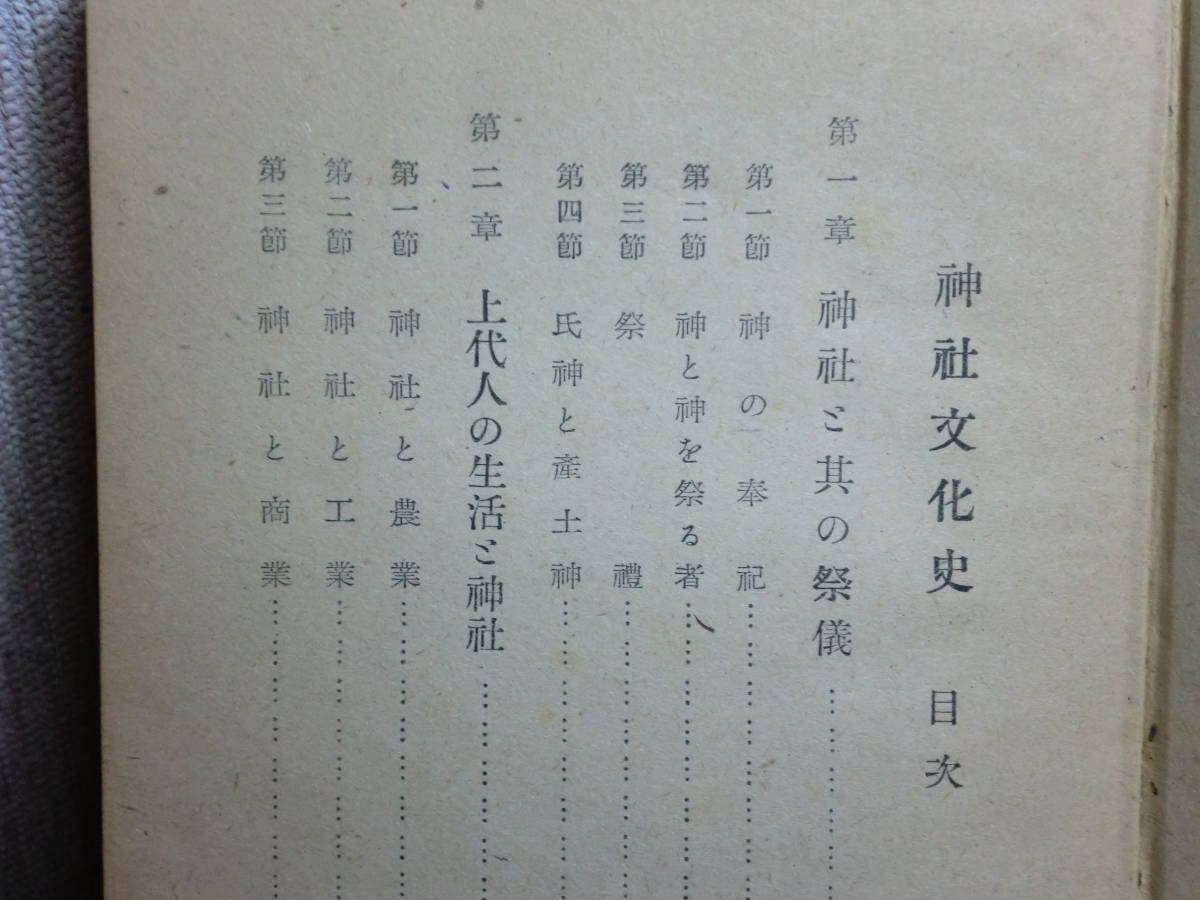 神社文化史 目次
第一章 神社と其の祭儀……………
第一節 神の奉祀……………
第二節 神と神を祭る者……………
第三節 祭禮……………
第四節 氏神と產土神……………
第二章 上代人の生活と神社……………
第一節 神社と農業……………
第二節 神社と工業……………
第三節 神社と商業……………